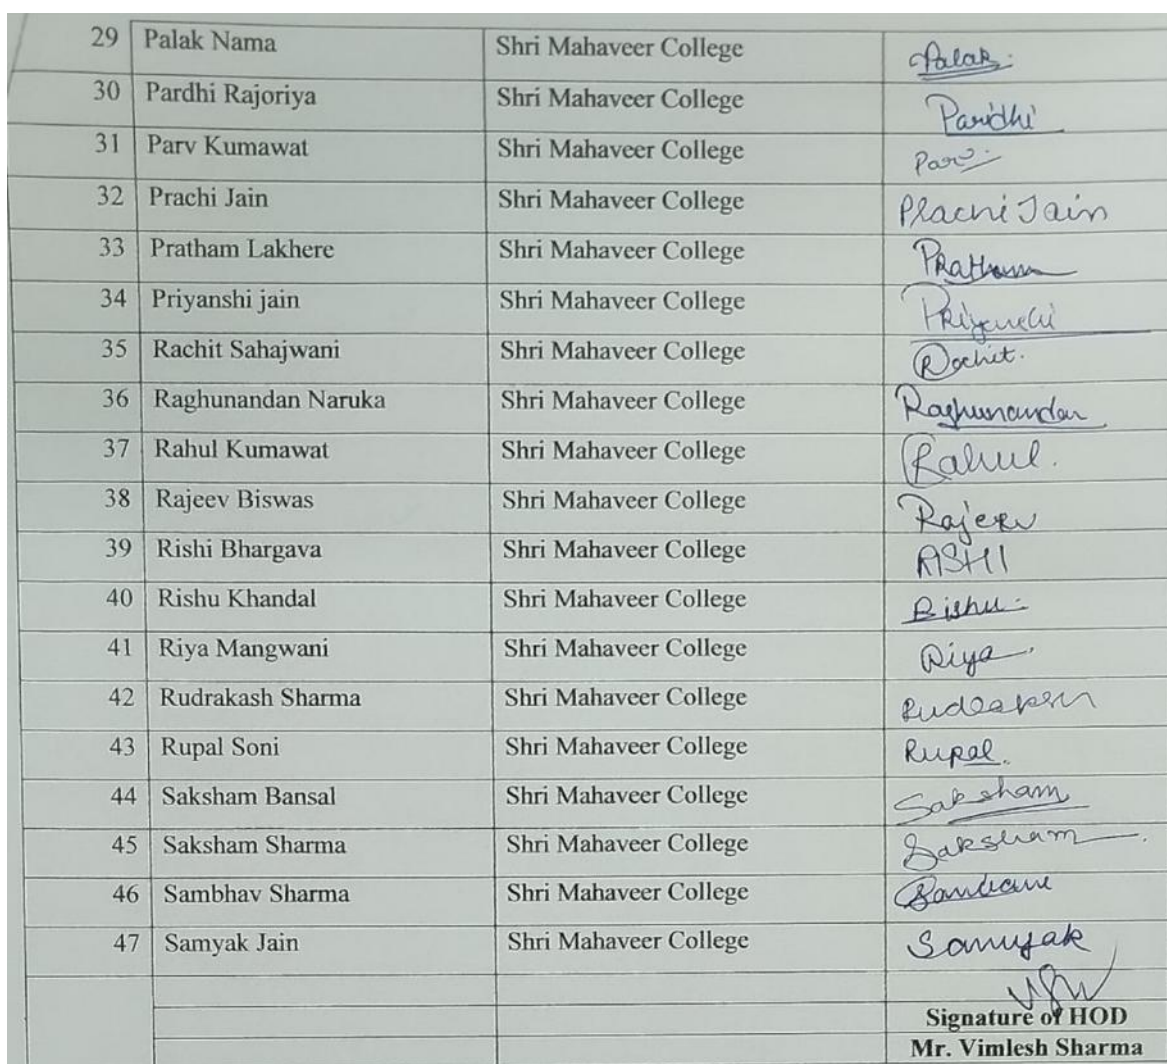 29 Palak Nama Shri Mahaveer College Palak.
30 Pardhi Rajoriya Shri Mahaveer College Paridhi
31 Parv Kumawat Shri Mahaveer College Parv
32 Prachi Jain Shri Mahaveer College Prachi Jain
33 Pratham Lakhere Shri Mahaveer College Pratham
34 Priyanshi jain Shri Mahaveer College Priyanshi
35 Rachit Sahajwani Shri Mahaveer College Rachit.
36 Raghunandan Naruka Shri Mahaveer College Raghunandan
37 Rahul Kumawat Shri Mahaveer College Rahul.
38 Rajeev Biswas Shri Mahaveer College Rajeev
39 Rishi Bhargava Shri Mahaveer College RISHI
40 Rishu Khandal Shri Mahaveer College Rishu
41 Riya Mangwani Shri Mahaveer College Riya
42 Rudrakash Sharma Shri Mahaveer College
43 Rupal Soni Shri Mahaveer College Rupal.
44 Saksham Bansal Shri Mahaveer College Saksham
45 Saksham Sharma Shri Mahaveer College Saksham
46 Sambhav Sharma Shri Mahaveer College
47 Samyak Jain Shri Mahaveer College Samyak
Signature of HOD
Mr. Vimlesh Sharma